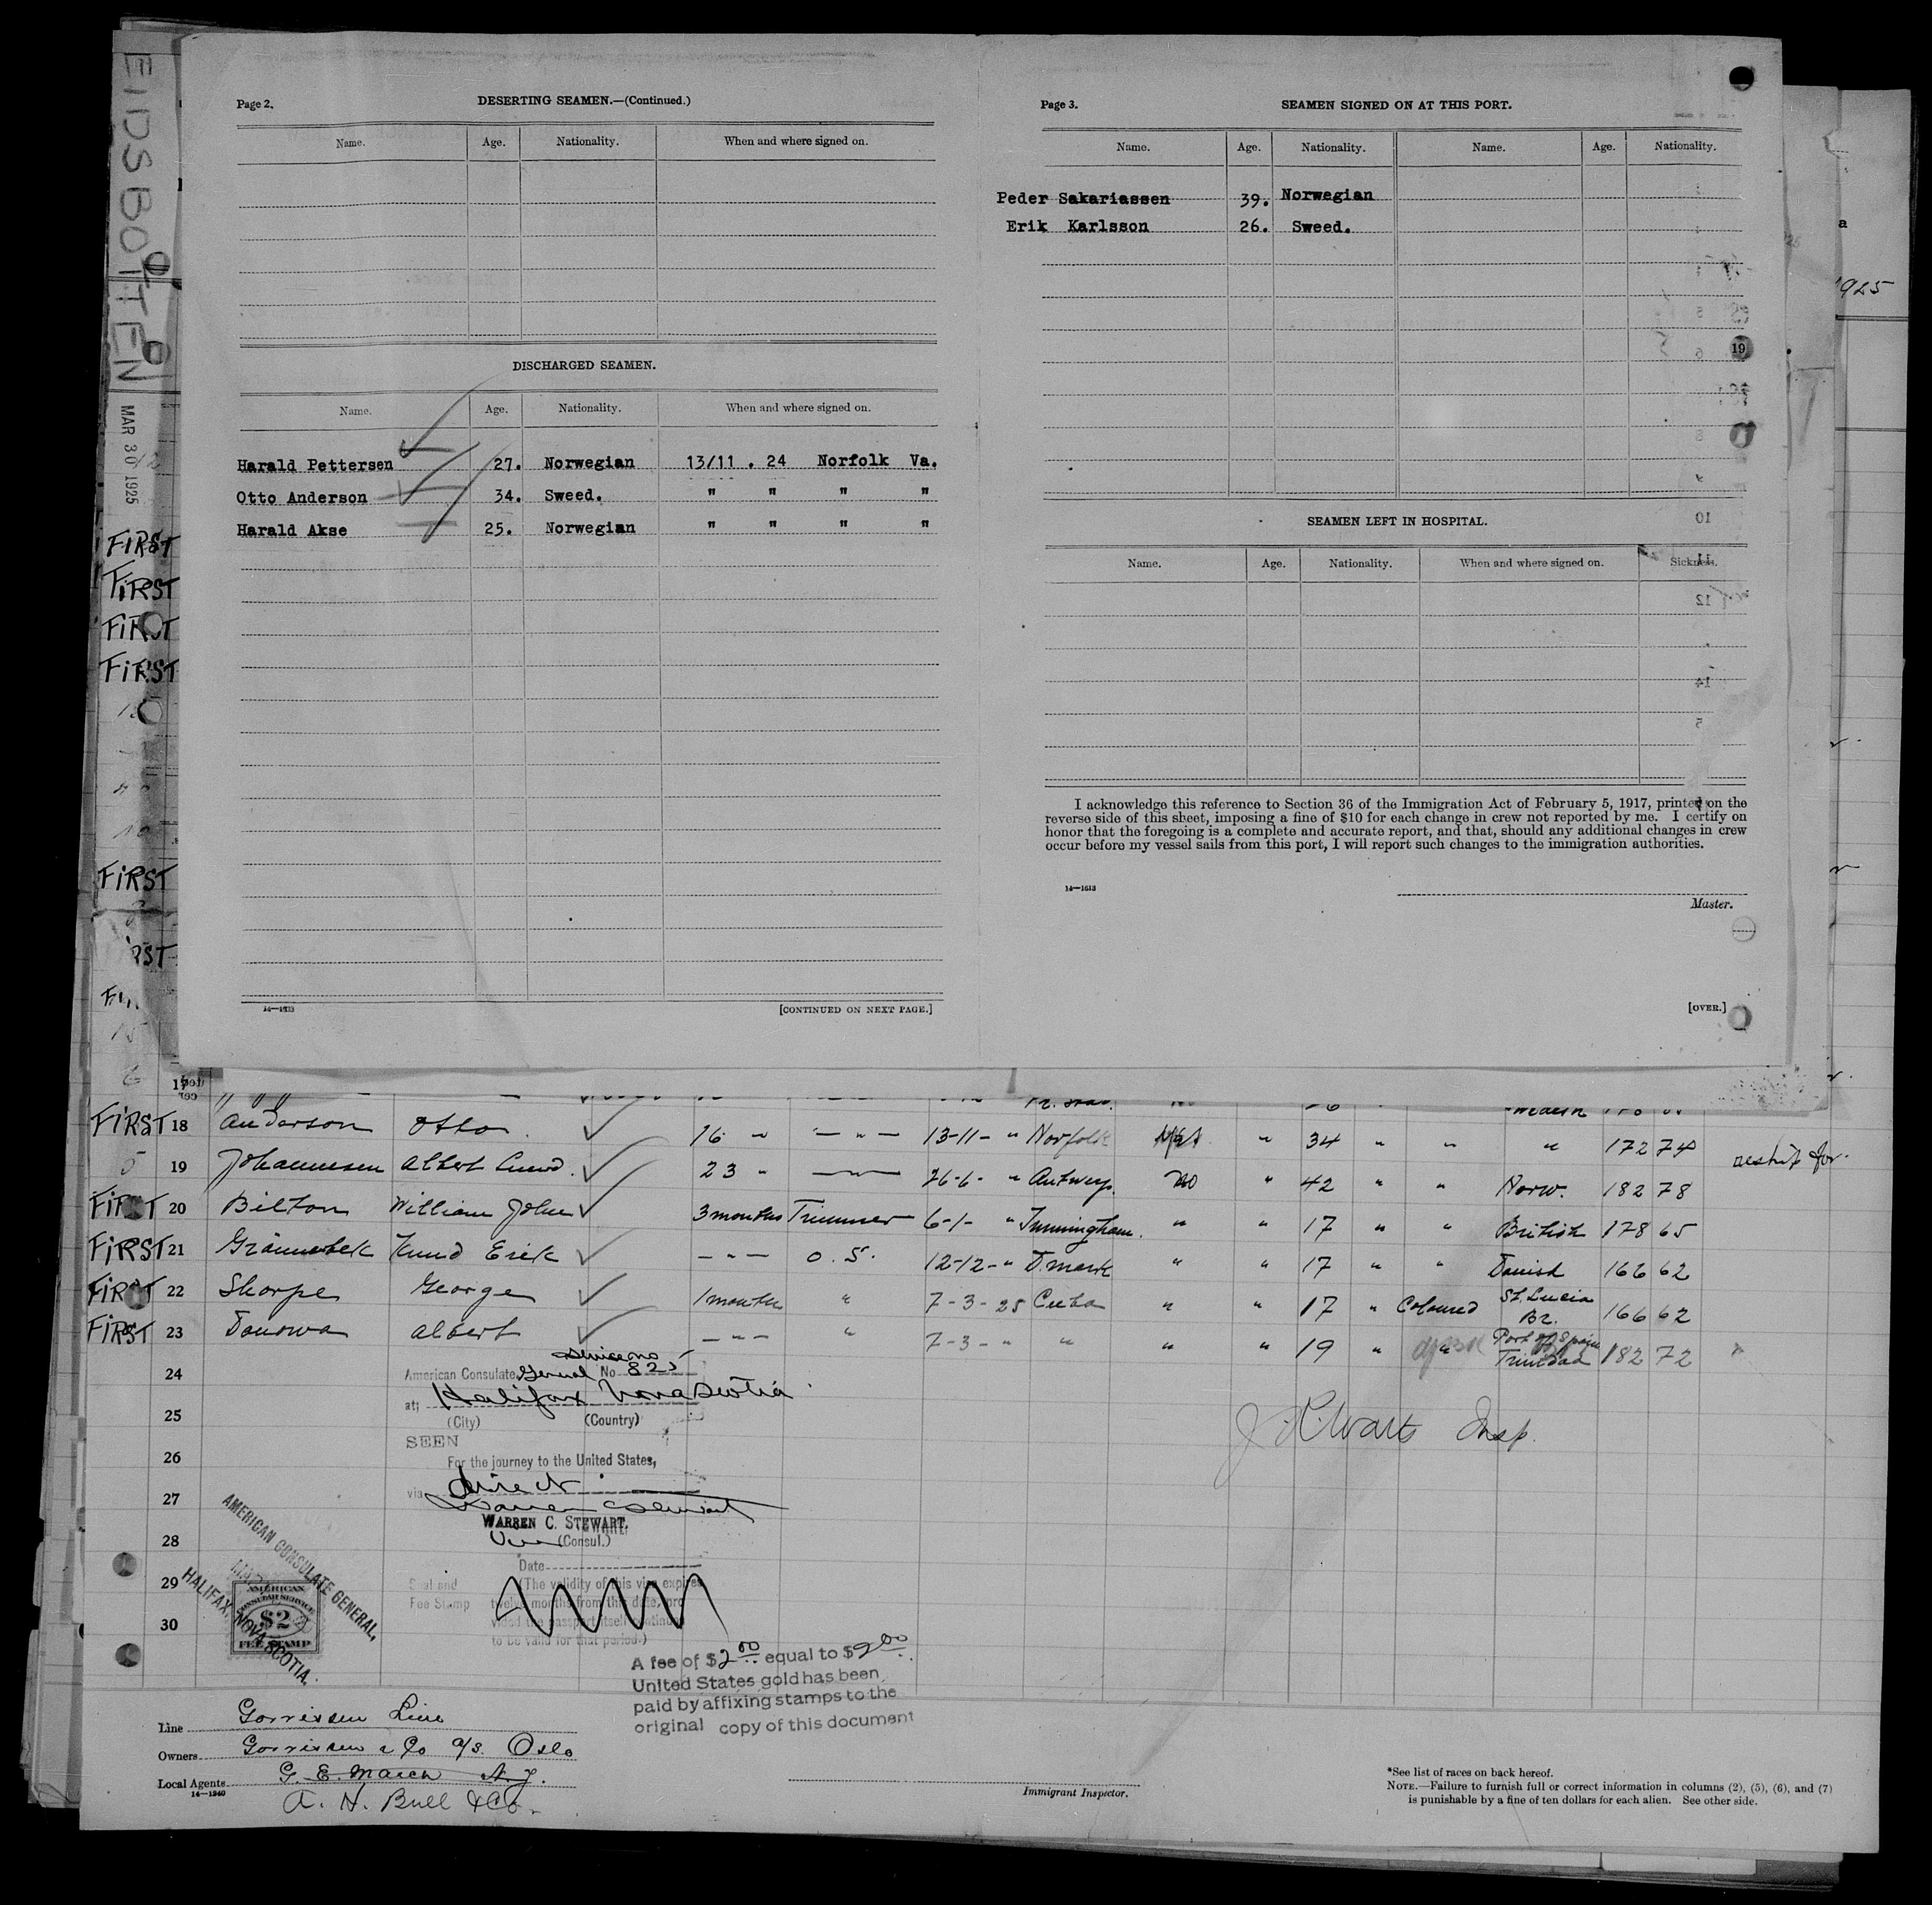 EIDSBOTTEN
MAR 30 1925
Page 2.
DESERTING SEAMEN.—(Continued.)
Name. Age. Nationality. When and where signed on.
DISCHARGED SEAMEN.
Name. Age. Nationality. When and where signed on.
Harald Pettersen 27. Norwegian 13/11 . 24 Norfolk Va.
Otto Anderson 34. Sweed. " " " "
Harald Akse 25. Norwegian " " " "
14—1613
[CONTINUED ON NEXT PAGE.]
Page 3.
SEAMEN SIGNED ON AT THIS PORT.
Name. Age. Nationality. Name. Age. Nationality.
Peder Sakariassen 39. Norwegian
Erik Karlsson 26. Sweed.
SEAMEN LEFT IN HOSPITAL.
Name. Age. Nationality. When and where signed on. Sickness.
I acknowledge this reference to Section 36 of the Immigration Act of February 5, 1917, printed on the
reverse side of this sheet, imposing a fine of $10 for each change in crew not reported by me. I certify on
honor that the foregoing is a complete and accurate report, and that, should any additional changes in crew
occur before my vessel sails from this port, I will report such changes to the immigration authorities.
14—1613
Master.
[OVER.]
1925
FIRST
FIRST
FIRST
FIRST
FIRST
17
FIRST 18 Anderson Otto 16 " — " — 13-11- " Norfolk " 34 " " " 172 74
19 Johannesen Albert 23 " — " — 26-6- " Antwerp. No " 42 " " Norw. 182 78
FIRST 20 Bilton William John 3 months Trimmer 6-1- " " " 17 " " British 178 65
FIRST 21 Knud Erik — " — O.S. 12-12- " D.mark " " 17 " " Danish 166 62
FIRST 22 Skorpe George 1 month " 7-3-25 Cuba " " 17 " Coloured St. Lucia Br. 166 62
FIRST 23 Donowa Albert — " — " 7-3- " " " " 19 " " Port of Spain Trinidad 182 72
24
25
26
27
28
29
30
American Consulate General Service No 825
at Halifax Nova Scotia
(City) (Country)
SEEN
For the journey to the United States,
via direct
Warren C Stewart
WARREN C. STEWART.
Vice (Consul.)
Date
Seal and
Fee Stamp
(The validity of this visa expires
twelve months from this date, pro
vided the passport itself continues
to be valid for that period.)
AMERICAN CONSULATE GENERAL,
HALIFAX, NOVA SCOTIA.
AMERICAN
CONSULAR SERVICE
$2
FEE STAMP
A fee of $2.00 equal to $2.00
United States gold has been
paid by affixing stamps to the
original copy of this document
Insp.
Line Gorrissen Line
Owners Gorrissen & Co a/s. Oslo
Local Agents G. E. March N.Y.
14—1240
A. H. Bull & Co.
Immigrant Inspector.
*See list of races on back hereof.
NOTE.—Failure to furnish full or correct information in columns (2), (5), (6), and (7)
is punishable by a fine of ten dollars for each alien. See other side.